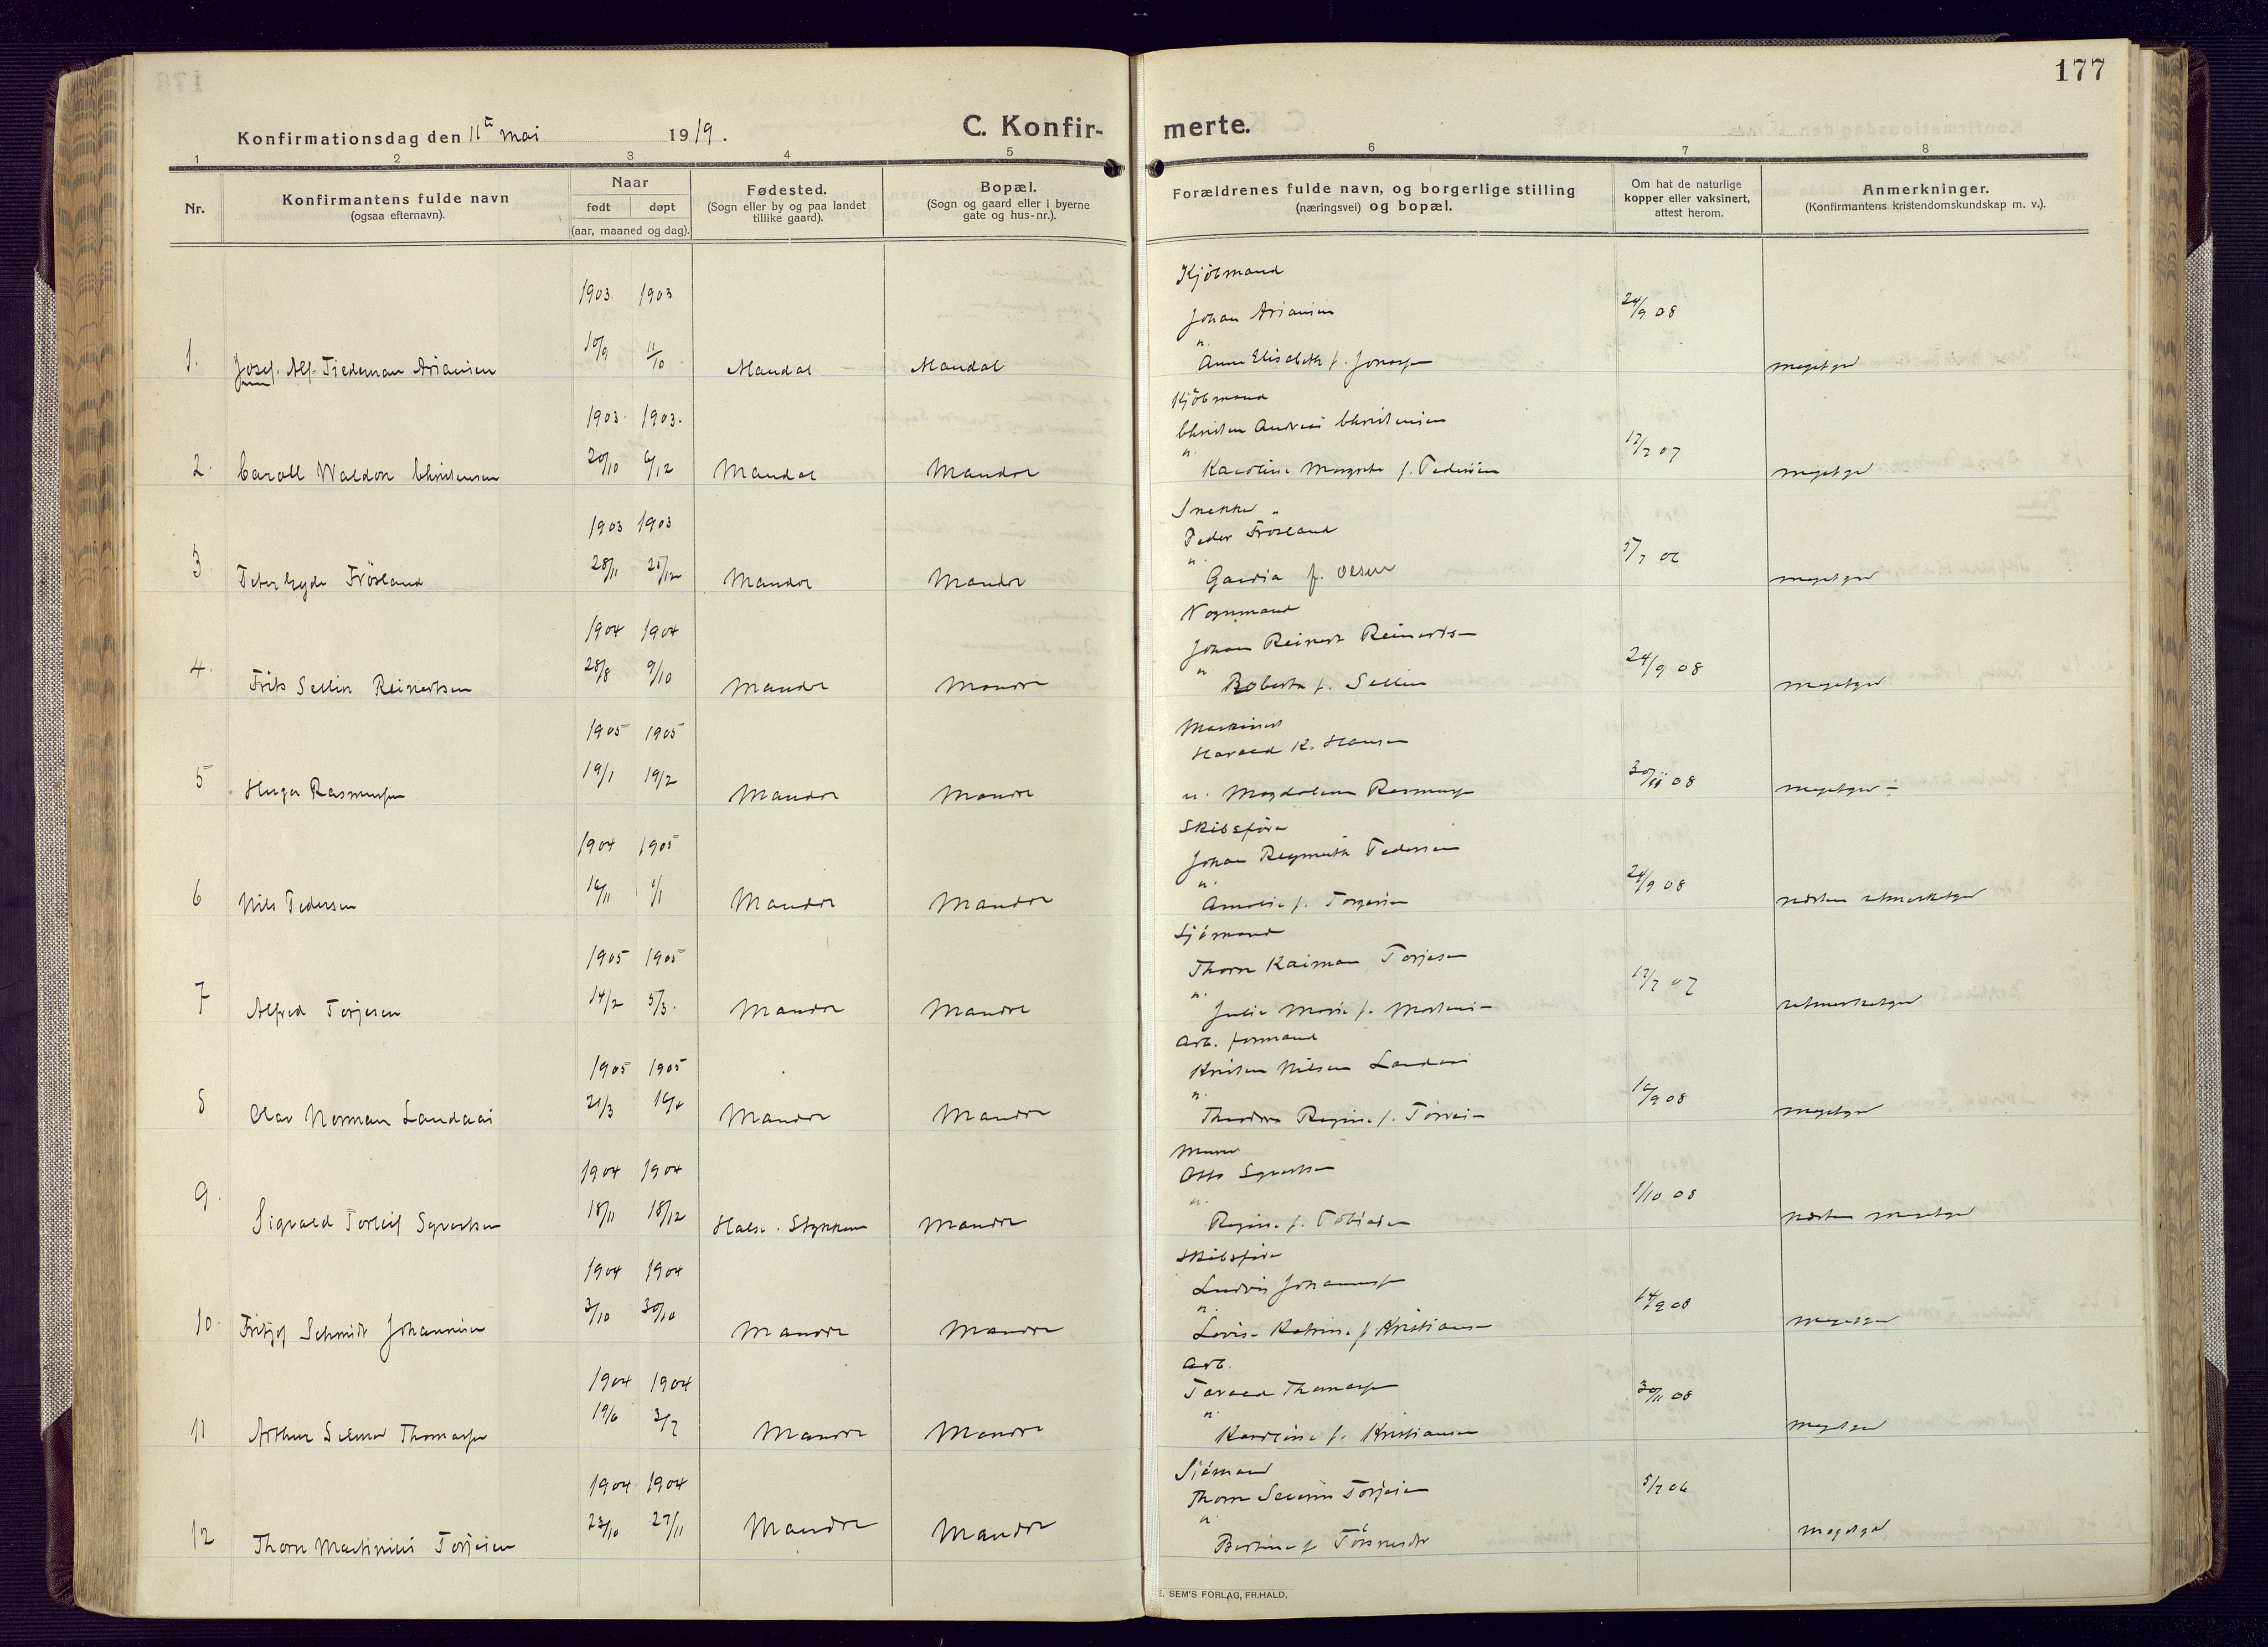 177
Konfirmationsdag den 11te mai 1919.
C. Konfir-
merte.
1 2 3 4 5 6 7 8
Nr.
Konfirmantens fulde navn
(ogsaa efternavn).
Naar
født døpt
(aar, maaned og dag).
Fødested.
(Sogn eller by og paa landet
tillike gaard).
Bopæl.
(Sogn og gaard eller i byerne
gate og hus-nr.).
Forældrenes fulde navn, og borgerlige stilling
(næringsvei) og bopæl.
Om hat de naturlige
kopper eller vaksinert,
attest herom.
Anmerkninger.
(Konfirmantens kristendomskundskap m. v.).
Kjöbmand
1903 1903
Johan Ariansen 24/9 08
10/9 11/10
1. Josef. Alf. Tiedeman Ariansen Mandal Mandal
Anne Elisabeth f. Jonassen megetgod
Kjöbmand
1903. 1903.
Christen Andreas Christensen
20/10 6/12 17/7 07
2. Caroll Waldon Christensen Mandal Mandal
Karoline Margrete f. Pedersen megetgod
Snekker
1903 1903
Peder Frösland
28/11 25/12 5/7 06
3. Frösland Mandal Mandal
f. Olsen megetgod
Vognmand
1904 1904
Johan Reinert Reinertsen
28/8 9/10 24/9 08
4. Frits Sellin Reinertsen Mandal Mandal
Roberta f. Sellin megetgod
Maskinist
1905 1905
Harald K. Hansen
19/1 19/2 30/11 08
5 Hugo Rasmussen Mandal Mandal
u. Magdalene Rasmussen megetgod
Skibsförer
1904 1905
Johan Pedersen
16/11 1/1 24/9 08
6 Nils Pedersen Mandal Mandal
Amalie f. Torgersen næsten utmerketgod
Sjömand
1905 1905
Thorn Kaiman Torjesen
14/2 5/3. 17/7 07
7 Alfred Torjesen Mandal Mandal
Julie Marie f. utmerketgod
Arb. formand
1905 1905
Kristen Nilsen Landaas
21/3 16/4 16/9 08
8 Olav Norman Landaas Mandal Mandal
Theodora Regine f. megetgod
Murer
1904 1904
Otto Syvertsen
18/11 18/12 1/10 08
9. Sigvald Torleif Syvertsen Halse. Stykkene Mandal
Regine f. Tobiasen næsten megetgod
Skibsförer
1904 1904
Ludvig Johannessen
3/10 30/10 08
10. Fritjof Schmidt Johannesen Mandal Mandal
Lovise Katrine f Kristiansen megetgod
Arb.
1904 1904
Torvald Thomassen
19/6 3/7 30/11 08
11 Arthur Selmer Thomassen Mandal Mandal
Karoline f. Kristiansen megetgod
Sjömand
1904 1904
Thorn Severin Torjesen
23/10 27/11 5/7 06
12 Thorn Martinius Torjesen Mandal Mandal
Bertine f megetgod
E. SEM'S FORLAG, FR.HALD.